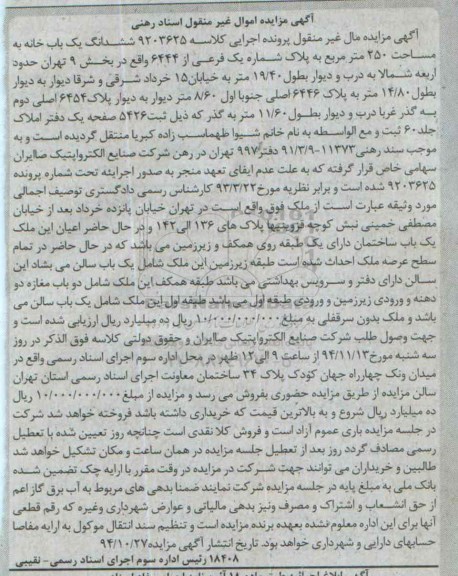 آگهی مزایده اموال غیر منقول اسناد رهنی
آگهی مزایده مال غیر منقول پرونده اجرایی کلاسه ۹۲۰۳۶۲۵ ششدانگ یک باب خانه به
مساحت ۲۵۰ متر مربع به پلاک شماره یک فرعی از ۶۴۴۴ واقع در بخش ۹ تهران حدود
اربعه شمالا به درب و دیوار بطول ۱۹/۴۰ متر به خیابان ۱۵ خرداد شرقی و شرقا دیوار به دیوار
بطول ۱۴/۸۰ متر به پلاک ۶۴۴۶ اصلی جنوبا اول ۸/۶۰ متر دیوار به دیوار پلاک ۶۴۵۴ اصلی دوم
پسه گذر غربا درب و دیوار بطول ۱۱/۶۰ متر به گذر که ذیل ثبت ۵۴۲۶ صفحه یک دفتر املاک
جلد ۶۰ ثبت و مع الواسطه به نام خانم شیوا طهماسب زاده کبریا منتقل گردیده است و به
موجب سند رهنی ۱۱۳۷۳-۹۱/۳/۹ دفتر ۹۹۷ تهران در رهن شرکت صنایع الکترواپتیک صاایران
سهامی خاص قرار گرفته که به علت عدم ایفای تعهد منجر به صدور اجرائیه تحت شماره پرونده
۹۲۰۳۶۲۵ شده است و برابر نظریه مورخ ۹۳/۳/۲۲ کارشناس رسمی دادگستری توصیف اجمالی
مورد وثیقه عبارت است از ملک فوق واقع است در تهران خیابان پانزده خرداد بعد از خیابان
مصطفی خمینی نبش کوچه قزوینیها پلاک های ۱۳۶ الی ۱۴۲ و در حال حاضر اعیان این ملک
یک باب ساختمان دارای یک طبقه روی همکف و زیرزمین می باشد که در حال حاضر در تمام
سطح عرصه ملک احداث شده است طبقه زیرزمین این ملک شامل یک باب سالن می بشاد این
سالن دارای دفتر و سرویس بهداشتی می باشد طبقه همکف این ملک شامل دو باب مغازه دو
دهنه و ورودی زیرزمین و ورودی طبقه اول می باشد طبقه اول این ملک شامل یک باب سالن می
باشد و ملک بدون سرقفلی به مبلغ ۱۰/۰۰۰/۰۰۰/۰۰۰ ریال ده میلیارد ریال ارزیابی شده است و
جهت وصول طلب شرکت صنایع الکترواپتیک صاایران و حقوق دولتی کلاسه فوق الذکر در روز
سه شنبه مورخ ۹۴/۱۱/۱۳ از ساعت ۹ الی ۱۲ ظهر در محل اداره سوم اجرای اسناد رسمی واقع در
میدان ونک چهارراه جهان کودک پلاک ۳۴ ساختمان معاونت اجرای اسناد رسمی استان تهران
سالن مزایده از طریق مزایده حضوری بفروش می رسد و مزایده از مبلغ ۱۰/۰۰۰/۰۰۰/۰۰۰ ریال
ده میلیارد ریال شروع و به بالاترین قیمت که خریداری داشته باشد فروخته خواهد شد شرکت
در جلسه مزایده باری عموم آزاد است و فروش کلا نقدی است چنانچه روز تعیین شده با تعطیل
رسمی مصادف گردد روز بعد از تعطیل جلسه مزایده در همان ساعت و مکان تشکیل خواهد شد
طالبین و خریداران می توانند جهت شرکت در مزایده در وقت مقرر با ارایه چک تضمین شده
بانک ملی به مبلغ پایه در جلسه مزایده شرکت نمایند ضمنا بدهی های مربوط به آب برق گاز اعم
از حق انشعاب و اشتراک و مصرف ونیز بدهی مالیاتی و عوارض شهرداری وغیره که رقم قطعی
آنها برای این اداره معلوم نشده بعهده برنده مزایده است و تنظیم سند انتقال موکول به ارایه مفاصا
حسابهای دارایی و شهرداری خواهد بود. تاریخ انتشار آگهی مزایده ۹۴/۱۰/۲۷
۱۸۴۰۸ رئیس اداره سوم اجرای اسناد رسمی - نقیبی